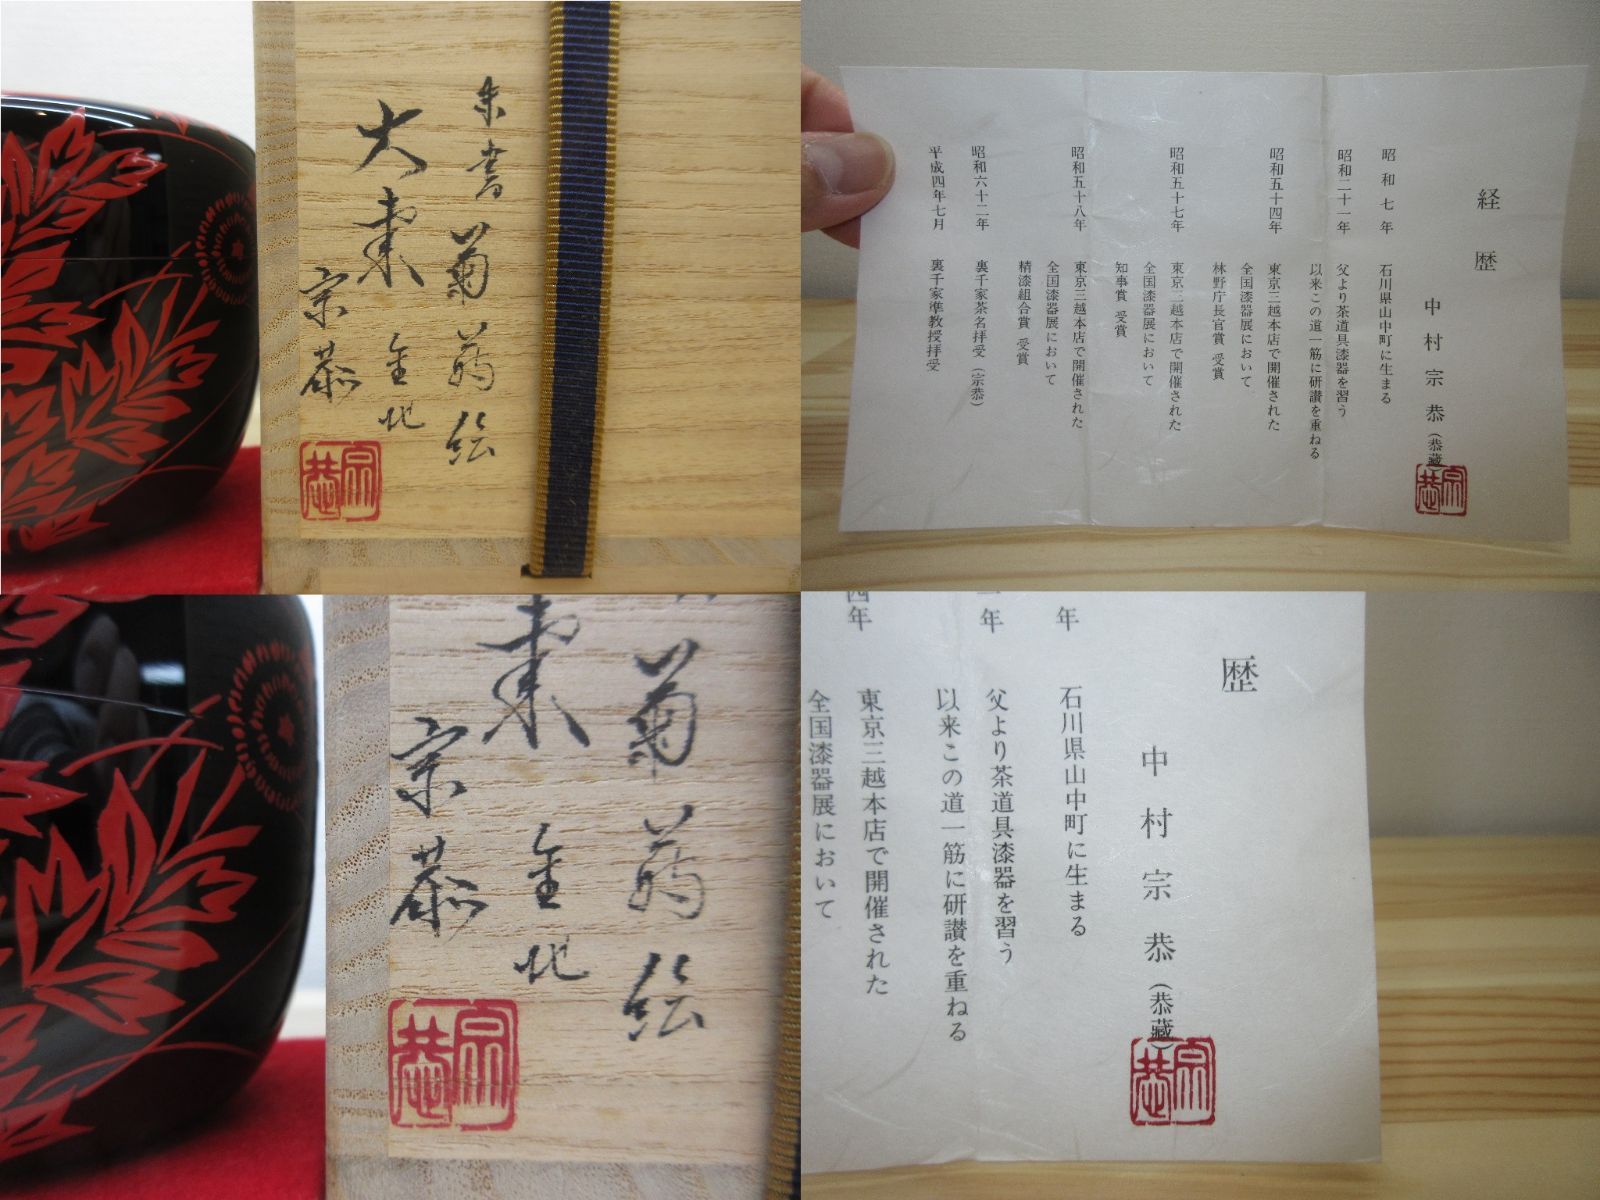 朱書菊蒔絵
大棗
金地
宗恭
宗恭
経歴
中村宗恭(恭藏)
宗恭
昭和七年 石川県山中町に生まる
昭和二十一年 父より茶道具漆器を習う
以来この道一筋に研讃を重ねる
昭和五十四年 東京三越本店で開催された
全国漆器展において
林野庁長官賞 受賞
昭和五十七年 東京三越本店で開催された
全国漆器展において
知事賞 受賞
昭和五十八年 東京三越本店で開催された
全国漆器展において
精漆組合賞 受賞
昭和六十二年 裏千家茶名拝受(宗恭)
平成四年七月 裏千家準教授拝受
菊蒔絵
棗
金地
宗恭
宗恭
歴
中村宗恭(恭藏)
宗恭
年 石川県山中町に生まる
一年 父より茶道具漆器を習う
以来この道一筋に研讃を重ねる
四年 東京三越本店で開催された
全国漆器展において